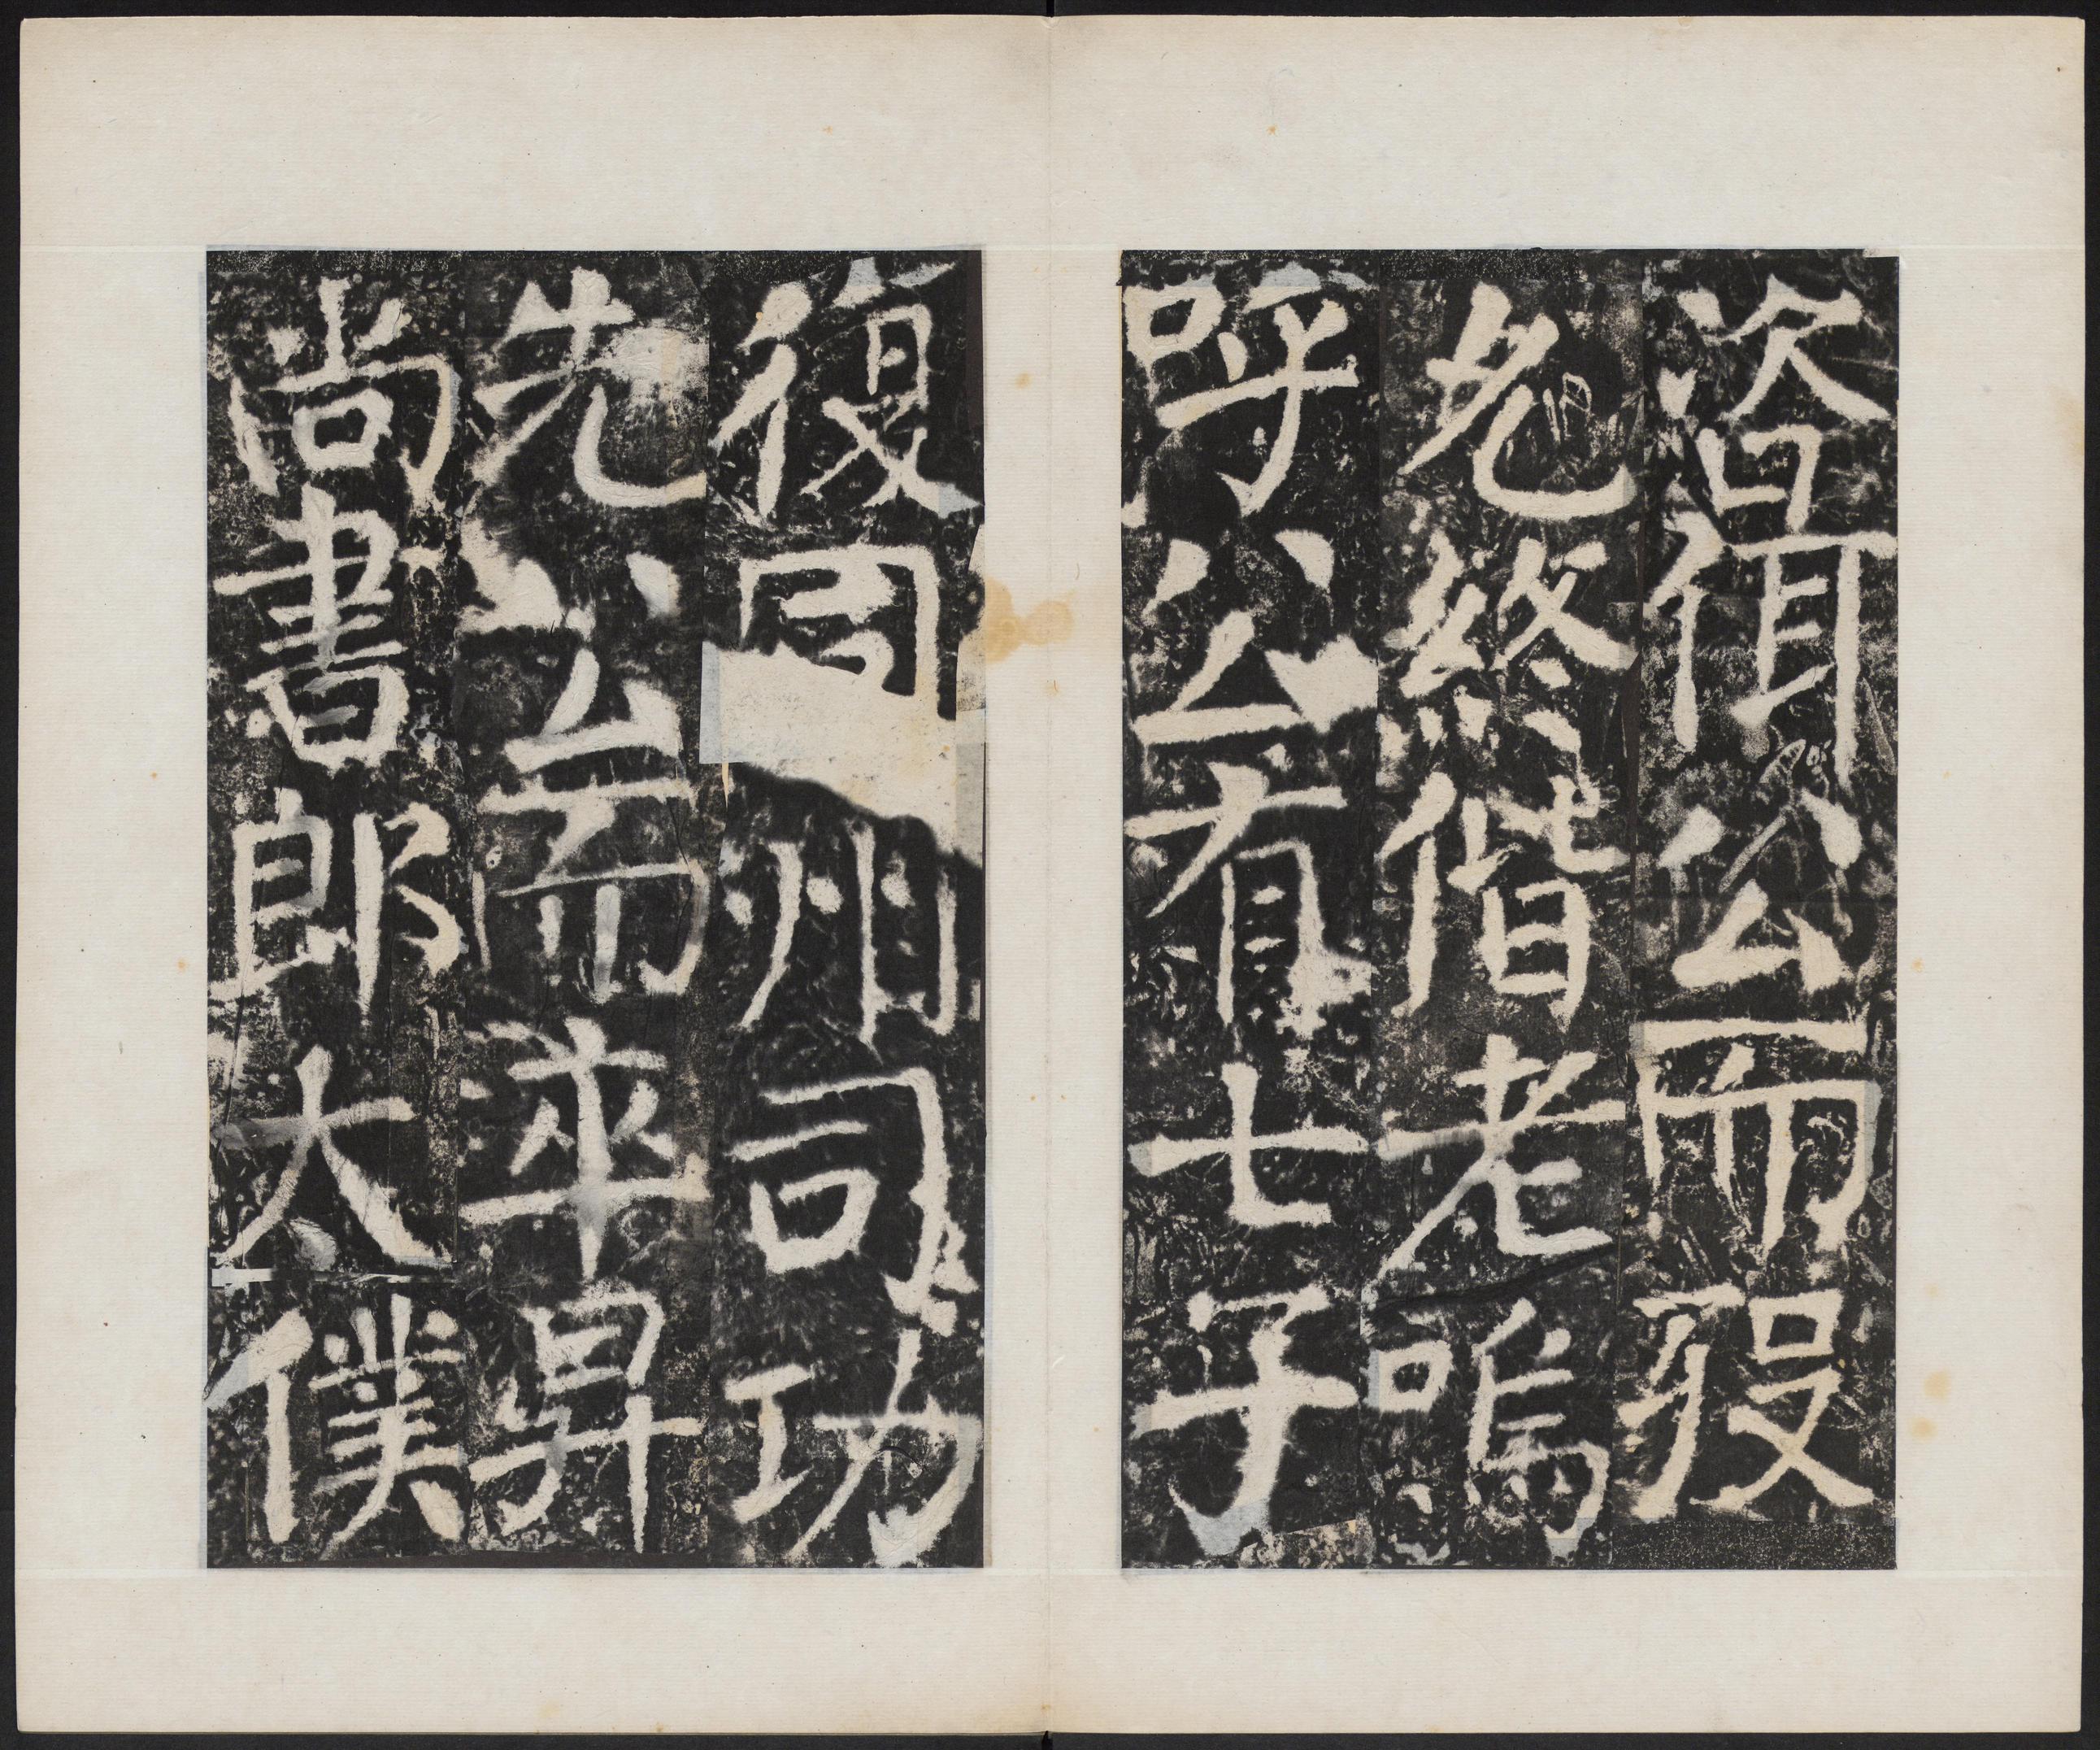 咨公而歿
允終偕老嗚
呼公有七子
復同州司功
先公而卒昇
尚書郎太僕